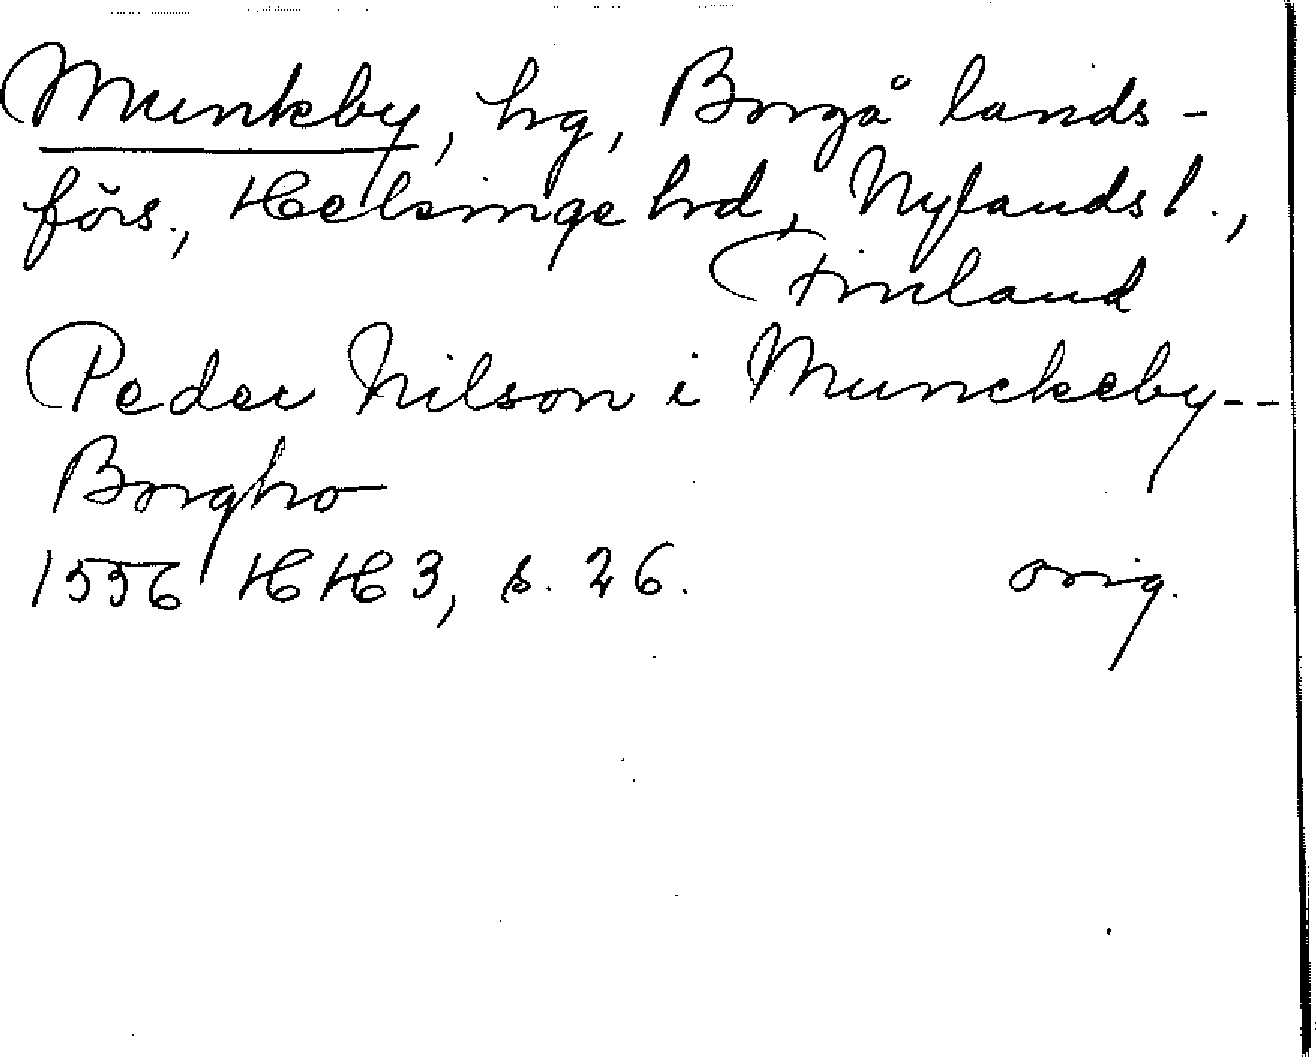 Munkby, hg, Borgå lands-
förs., Helsinge hrd, Nylands l.,
Finland
Peder Nilson i Munckeby--
Borgho
1556 HH 3, s. 26. orig.